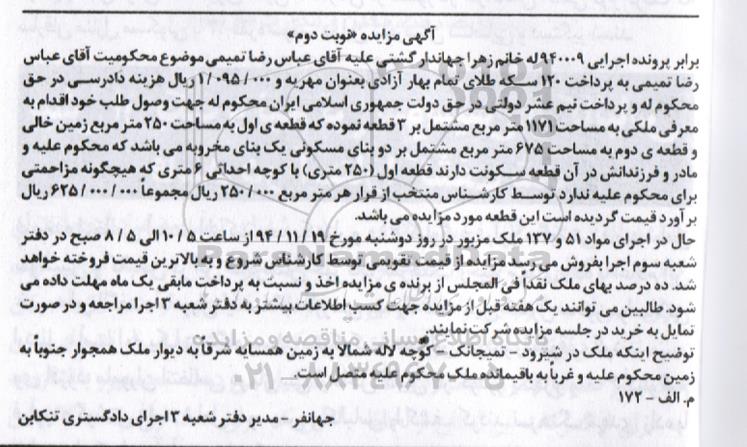 آگهی مزایده «نوبت دوم»
برابر پرونده اجرایی ۹۴۰۰۰۹ له خانم زهرا جهاندار گشتی علیه آقای عباس رضا تمیمی موضوع محکومیت آقای عباس
رضا تمیمی به پرداخت ۱۲۰ سکه طلای تمام بهار آزادی بعنوان مهریه و ۱/۰۹۵/۰۰۰ ریال هزینه دادرسی در حق
محکوم له و پرداخت نیم عشر دولتی در حق دولت جمهوری اسلامی ایران محکوم له جهت وصول طلب خود اقدام به
معرفی ملکی به مساحت ۱۱۷۱ متر مربع مشتمل بر ۳ قطعه نموده که قطعه ی اول به مساحت ۲۵۰ متر مربع زمین خالی
و قطعه ی دوم به مساحت ۶۷۵ متر مربع مشتمل بر دو بنای مسکونی یک بنای مخروبه می باشد که محکوم علیه و
مادر و فرزندانش در آن قطعه سکونت دارند قطعه اول (۲۵۰ متری) با کوچه احداثی ۶ متری که هیچگونه مزاحمتی
برای محکوم علیه ندارد توسط کارشناس منتخب از قرار هر متر مربع ۲۵۰/۰۰۰ ریال مجموعاً ۶۲۵/۰۰۰/۰۰۰ ریال
برآورد قیمت گردیده است این قطعه مورد مزایده می باشد.
حال در اجرای مواد ۵۱ و ۱۳۷ ملک مزبور در روز دوشنبه مورخ ۹۴/۱۱/۱۹ از ساعت ۱۰/۵ الی ۸/۵ صبح در دفتر
شعبه سوم اجرا بفروش می رسد مزایده از قیمت تقویمی توسط کارشناس شروع و به بالاترین قیمت فروخته خواهد
شد. ده درصد بهای ملک نقداً فی المجلس از برنده ی مزایده اخذ و نسبت به پرداخت مابقی یک ماه مهلت داده می
شود. طالبین می توانند یک هفته قبل از مزایده جهت کسب اطلاعات بیشتر به دفتر شعبه ۳ اجرا مراجعه و در صورت
تمایل به خرید در جلسه مزایده شرکت نمایند.
توضیح اینکه ملک در شیرود - تمیجانک - کوچه لاله شمالاً به زمین همسایه شرقاً به دیوار ملک همجوار جنوباً به
زمین محکوم علیه و غرباً به باقیمانده ملک محکوم علیه متصل است.
م. الف - ۱۷۲
جهانفر - مدیر دفتر شعبه ۳ اجرای دادگستری تنکابن
ParsNamadData
پایگاه اطلاع رسانی مناقصه و مزایده
۰۲۱-۸۸۳۴۹۶۷۰-۵